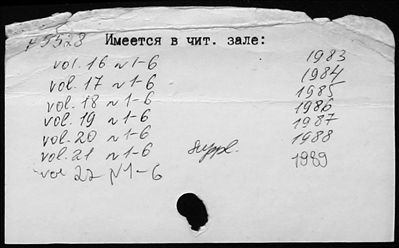 P5528 Имеется в чит. зале:
vol. 16 N 1-6 1983
vol. 17 N 1-6 1984
vol. 18 N 1-6 1985
vol. 19 N 1-6 1986
vol. 20 N 1-6 1987
vol. 21 N 1-6 suppl. 1988
vol 22 N 1-6 1989